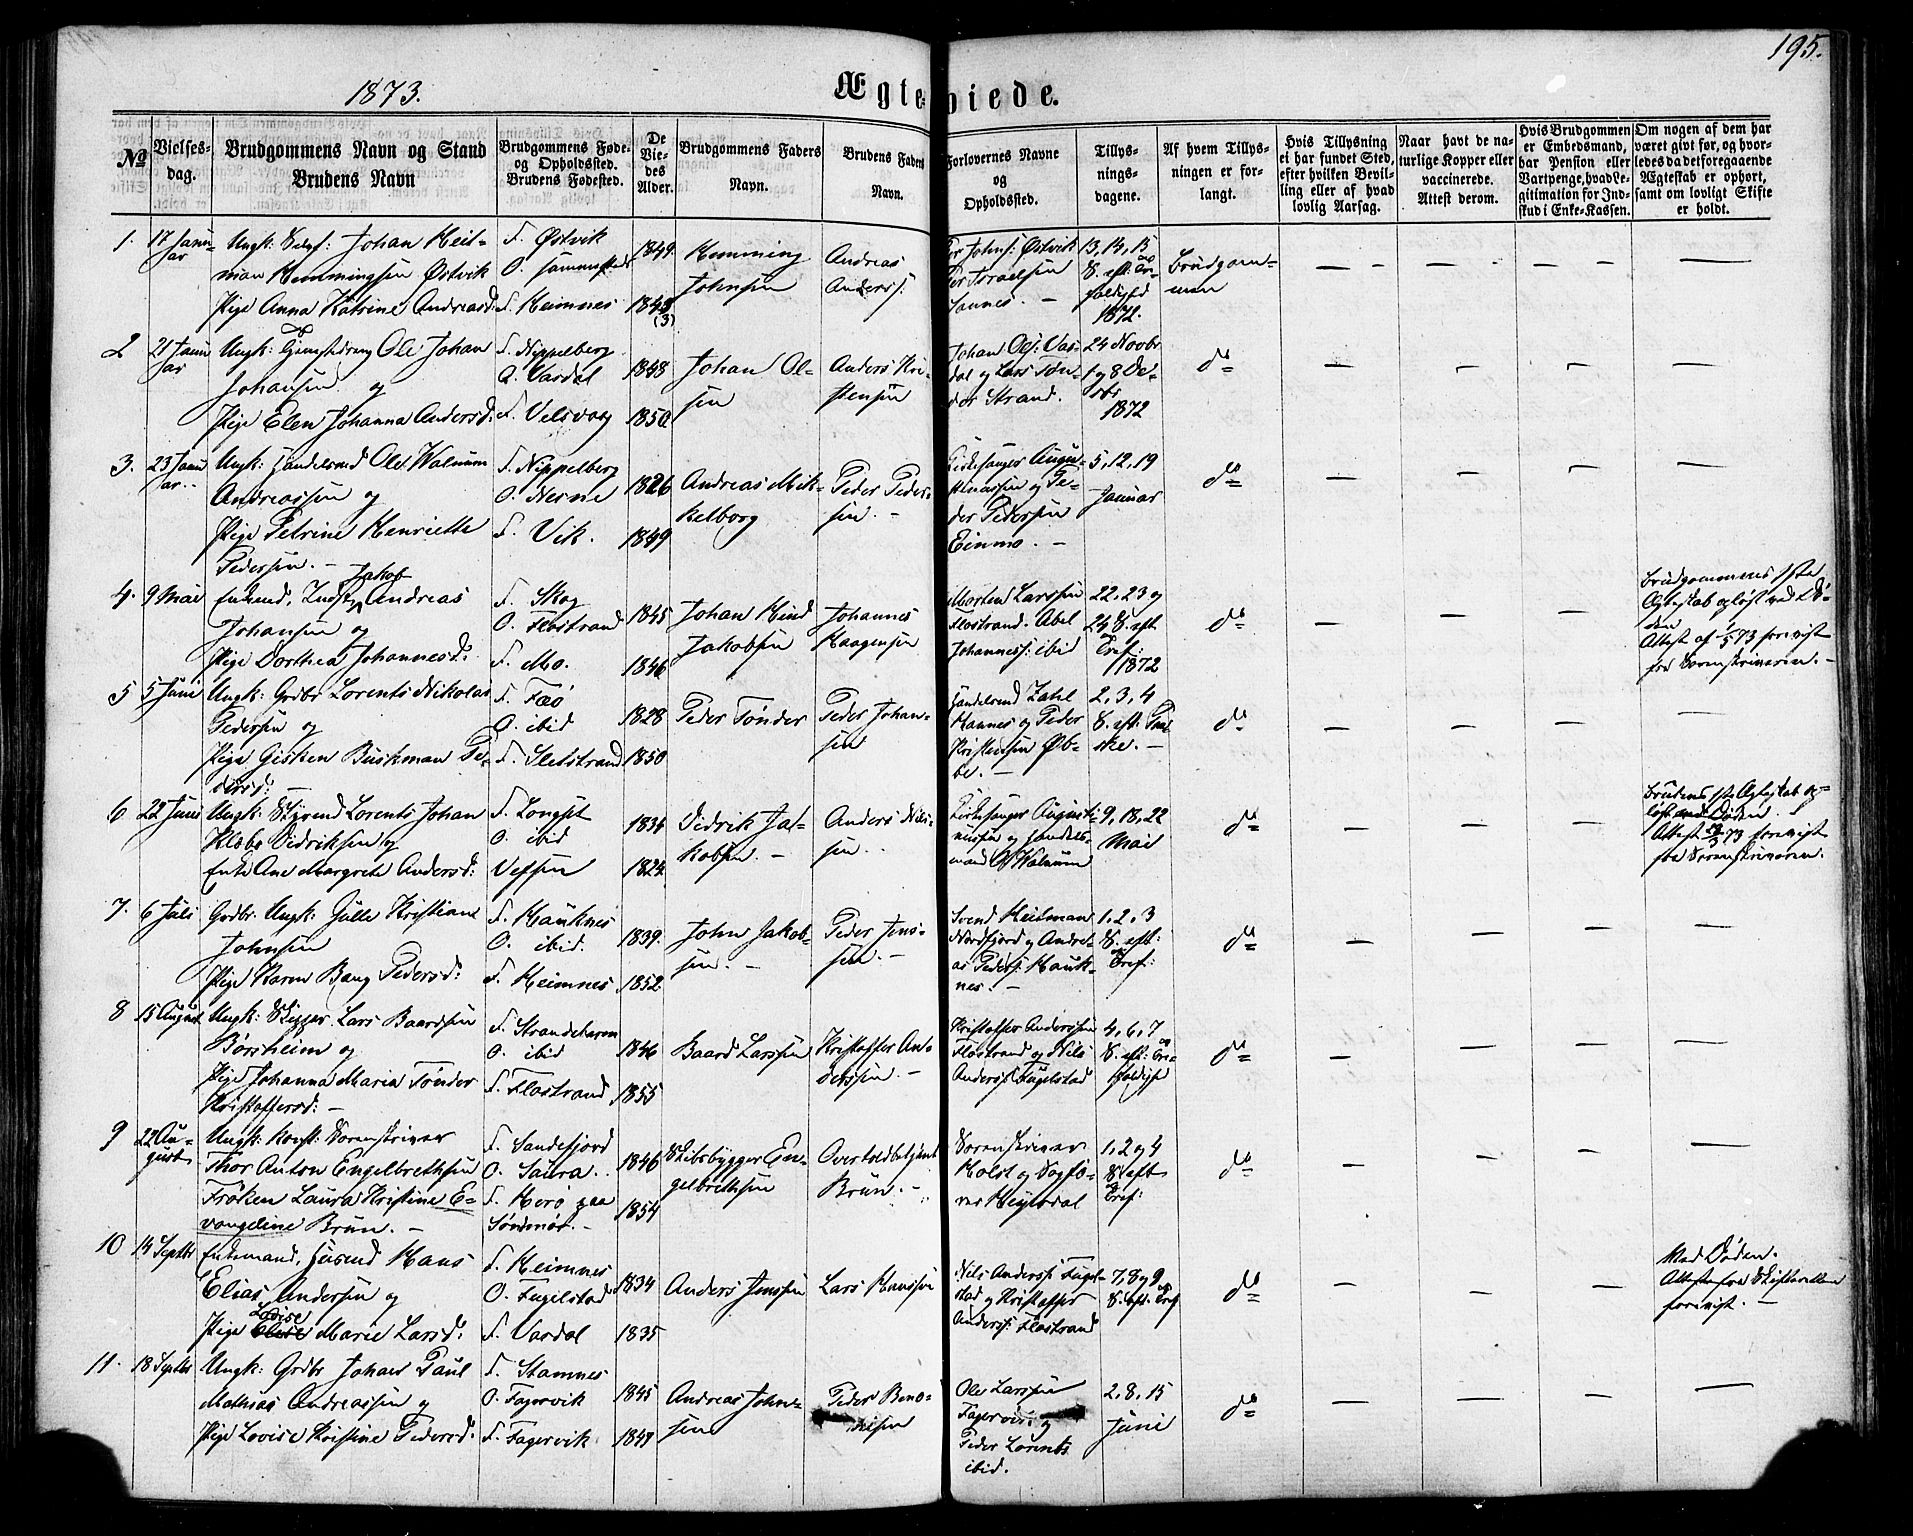 195.
1873.
Ægteviede.
No
Vielses-
dag.
Brudgommens Navn og Stand
Brudens Navn
Brudgommens Føde-
og Opholdssted.
Brudens Fødested.
De
Vie-
des
Alder.
Brudgommens Faders
Navn.
Brudens Faders
Navn.
Forlovernes Navne
og
Opholdssted.
Tillys-
nings-
dagene.
Af hvem Tillys-
ningen er for-
langt.
Hvis Tillysning
ei har fundet Sted,
efter hvilken Bevil-
ling eller af hvad
lovlig Aarsag.
Naar havt de na-
turlige Kopper eller
vaccinerede.
Attest derom.
Hvis Brudgommen
er Embedsmand,
har Pension eller
Vartpenge, hvad Le-
gitimation for Ind-
skud i Enke-Kassen.
Om nogen af dem har
været givt før, og hvor-
ledes da det foregaaende
Ægteskab er ophørt,
samt om lovligt Skifte
er holdt.
1. 17 Janu-
ar
Ungk: Johan Heit-
man Hemmingsen Østvik
Pige Anna Katrine Andreasd:
F. Østvik
O.
F. Heimnes
1849
1848
(3)
Hemming
Johnsen
Andreas
Anderss:
Per Johns: Østvik
Per Israelsen
Sannes. —
13, 14, 15
S. eft: Tre-
foldighed
1872.
Brudgom-
men
2 21 Janu
ar
Ungk: Ole Johan
Johansen og
Pige Elen Johanna Andersd:
F. Nippelberg
O. Vardal
F. Velsvaag
1848
1850
Johan Ol-
sen
Anders Kri-
stensen
Johan Ols: Var-
dal og Lars Tøn-
der Strand.
24 Novbr
1 og 8 De-
cbr
1872
do
3. 23 Janu
ar
Ungk: Handelsmd Ole Walnum
Andreassen og
Pige Petrine Henriette
Pedersen. —
F. Nippelberg
O. Nesne
F. Vik.
1826
1849
Andreas Mik-
kelborg
Peder Peder-
sen. —
Kirkesanger Augu-
stinussen og Pe-
der Pedersen
Einmo. —
5, 12, 19
Januar
do
4. 9 Mai
Jakob
Enkemd, Indst, Andreas
Johansen og
Pige Dorthea Johannesd:
F. Skog
O. Flostrand
F. Mo.
1845
1846
Johan Hind
Jakobsen
Johannes
Haagensen
Morten Larssen
Flostrand. Abel
Johanness: ibid
22, 23 og
24 S. eft
Tref:
1872
do
Brudgommens 1ste
Ægteskab opløst ved Dø-
den
Attest af 1/5 73 forevist
fra Sorenskriveren. —
5 5 Juni
Ungk: Grdbr Lorents Nikolai
Pedersen og
Pige Gisken Buskman Pe-
dersd: —
F. Fæø
O. ibid
F. Sletstrand
1828
1850
Peder Tønder
Peder Johan-
sen
Handelsmd Zahl
Hannes og Peder
Kristensen Øb-
be. —
2, 3, 4
S. eft: Paa-
ske. —
do
6 22 Juni
Ungk: Styrmd Lorents Johan
Klæbo Didriksen og
Enke Ane Margrete Andersd:
F. Longset
O. ibid
Vefsen
1836
1824
Didrik Ja-
kobsen. —
Anders Nils-
sen.
Kirkesanger Augusti-
nussen og Handels-
mand Walnum
9, 18, 22
Mai
do
Brudens 1ste Ægteskab op-
løst ved Døden.
Attest 73 forevist
fra Sorenskriveren.
7. 6 Juli
Grdbr. Ungk: Julle Kristian
Johnsen
Pige Karen Bang Pedersd:
F. Hauknes
O. ibid.
F. Heimnes
1839
1852
John Jakob-
sen. —
Peder Jens-
sen. —
Svend Heitman
Nordfjord og Andre-
as Peders: Hauk-
nes. —
1, 2, 3
S. eft:
Tref:
do
8 15 August
Ungk: Skipper Lars Baardsen
Børsheim og
Pige Johanna Maria Tønder
Kristoffersd: —
F. Strandebarm
O. ibid
F. Flostrand
1846
1855
Baard Larssen
Kristoffer An-
derssen. —
Kristoffer Anderssen
Flostrand og Nils
Anderss: Fugelstad
4, 6, 7
S. eft: Tre-
foldigh
do
9 22 Au-
gust
Ungk: konst: Sorenskriver
Thor Anton Engelbrethsen
Frøken Laura Kristine E-
vangeline Brun. —
F. Sandefjord
O. Saura.
F. Herø paa
Søndmør. —
1846
1854
Skibsbygger En-
gelbrethsen
Overtoldbetjent
Brun. —
Sorenskriver
Holst og Sagfø-
rer Heyerdal
1, 2 og 4
S. eft
Tref:
do
10 14 Septbr
Enkemand, Husmd Hans
Elias Andersen og
Lovise
Pige Elise Marie Larsd:
F. Heimnes
O. Fugelstad
F. Vardal
1834
1835
Anders Jenssen
Lars Hanssen
Nils Anderss: Fugel-
stad og Kristoffer
Anderss: Flostrand
7, 8 og 9
S. eft: Tref
do
Ved Døden.
Attest fra Skifteretten
forevist. —
11. 18 Septbr
Ungk: Grdbr Johan Paul
Mathias Andreassen og
Pige Lovise Kristine Pedersd:
F. Stamnes
O. Fagervik
F. Fagervik
1845
1847
Andreas John-
sen
Peder Bend-
iksen
Ole Larssen
Fagervik og
Peder Lorents
ibid.
2, 8, 15
Juni
do